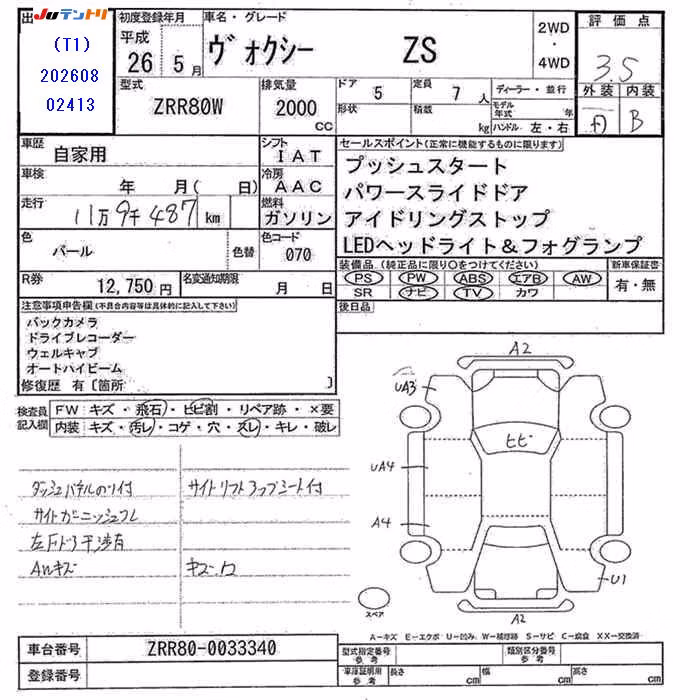 出 JUテントリ
(T1)
202608
02413
初度登録年月
平成
26 5 月
車名・グレード
ヴォクシー ZS
2WD
・
4WD
評価点
3.5
外装 内装
B
型式
ZRR80W
排気量
2000
CC
ドア
5
定員
7 人
形状
積載
kg
ディーラー・並行
モデル年式 年
ハンドル 左・右
車歴
自家用
シフト
IAT
車検
年 月( 日)
冷房
AAC
走行
11万9千487 km
燃料
ガソリン
色
パール
色替
色コード
070
R券
12,750 円
名変通知期限
月 日
セールスポイント(正常に機能するものに限ります)
プッシュスタート
パワースライドドア
アイドリングストップ
LEDヘッドライト&フォグランプ
装備品(純正品に限り○をつけてください)
PS PW ABS エアB AW
SR ナビ TV カワ
新車保証書
有・無
後日品
注意事項申告欄(不具合内容等は具体的に記入して下さい)
バックカメラ
ドライブレコーダー
ウェルキャブ
オートハイビーム
修復歴 有〔箇所 〕
検査員
記入欄
FW キズ・飛石・ヒビ割・リペア跡・×要
内装 キズ・汚レ・コゲ・穴・スレ・キレ・破レ
ダッシュパネルのり付
サイドリフトアップシート付
左Fドア干渉有
AWキズ
A2
UA3
ヒビ
UA4
A4
U1
A2
スペア
A−キズ E−エクボ U−凹み W−補修跡 S−サビ C−腐食 XX−交換済
車台番号
ZRR80-0033340
登録番号
型式指定番号
参考
類別区分番号
参考
車庫証明用
参考
長さ cm
幅 cm
高さ cm